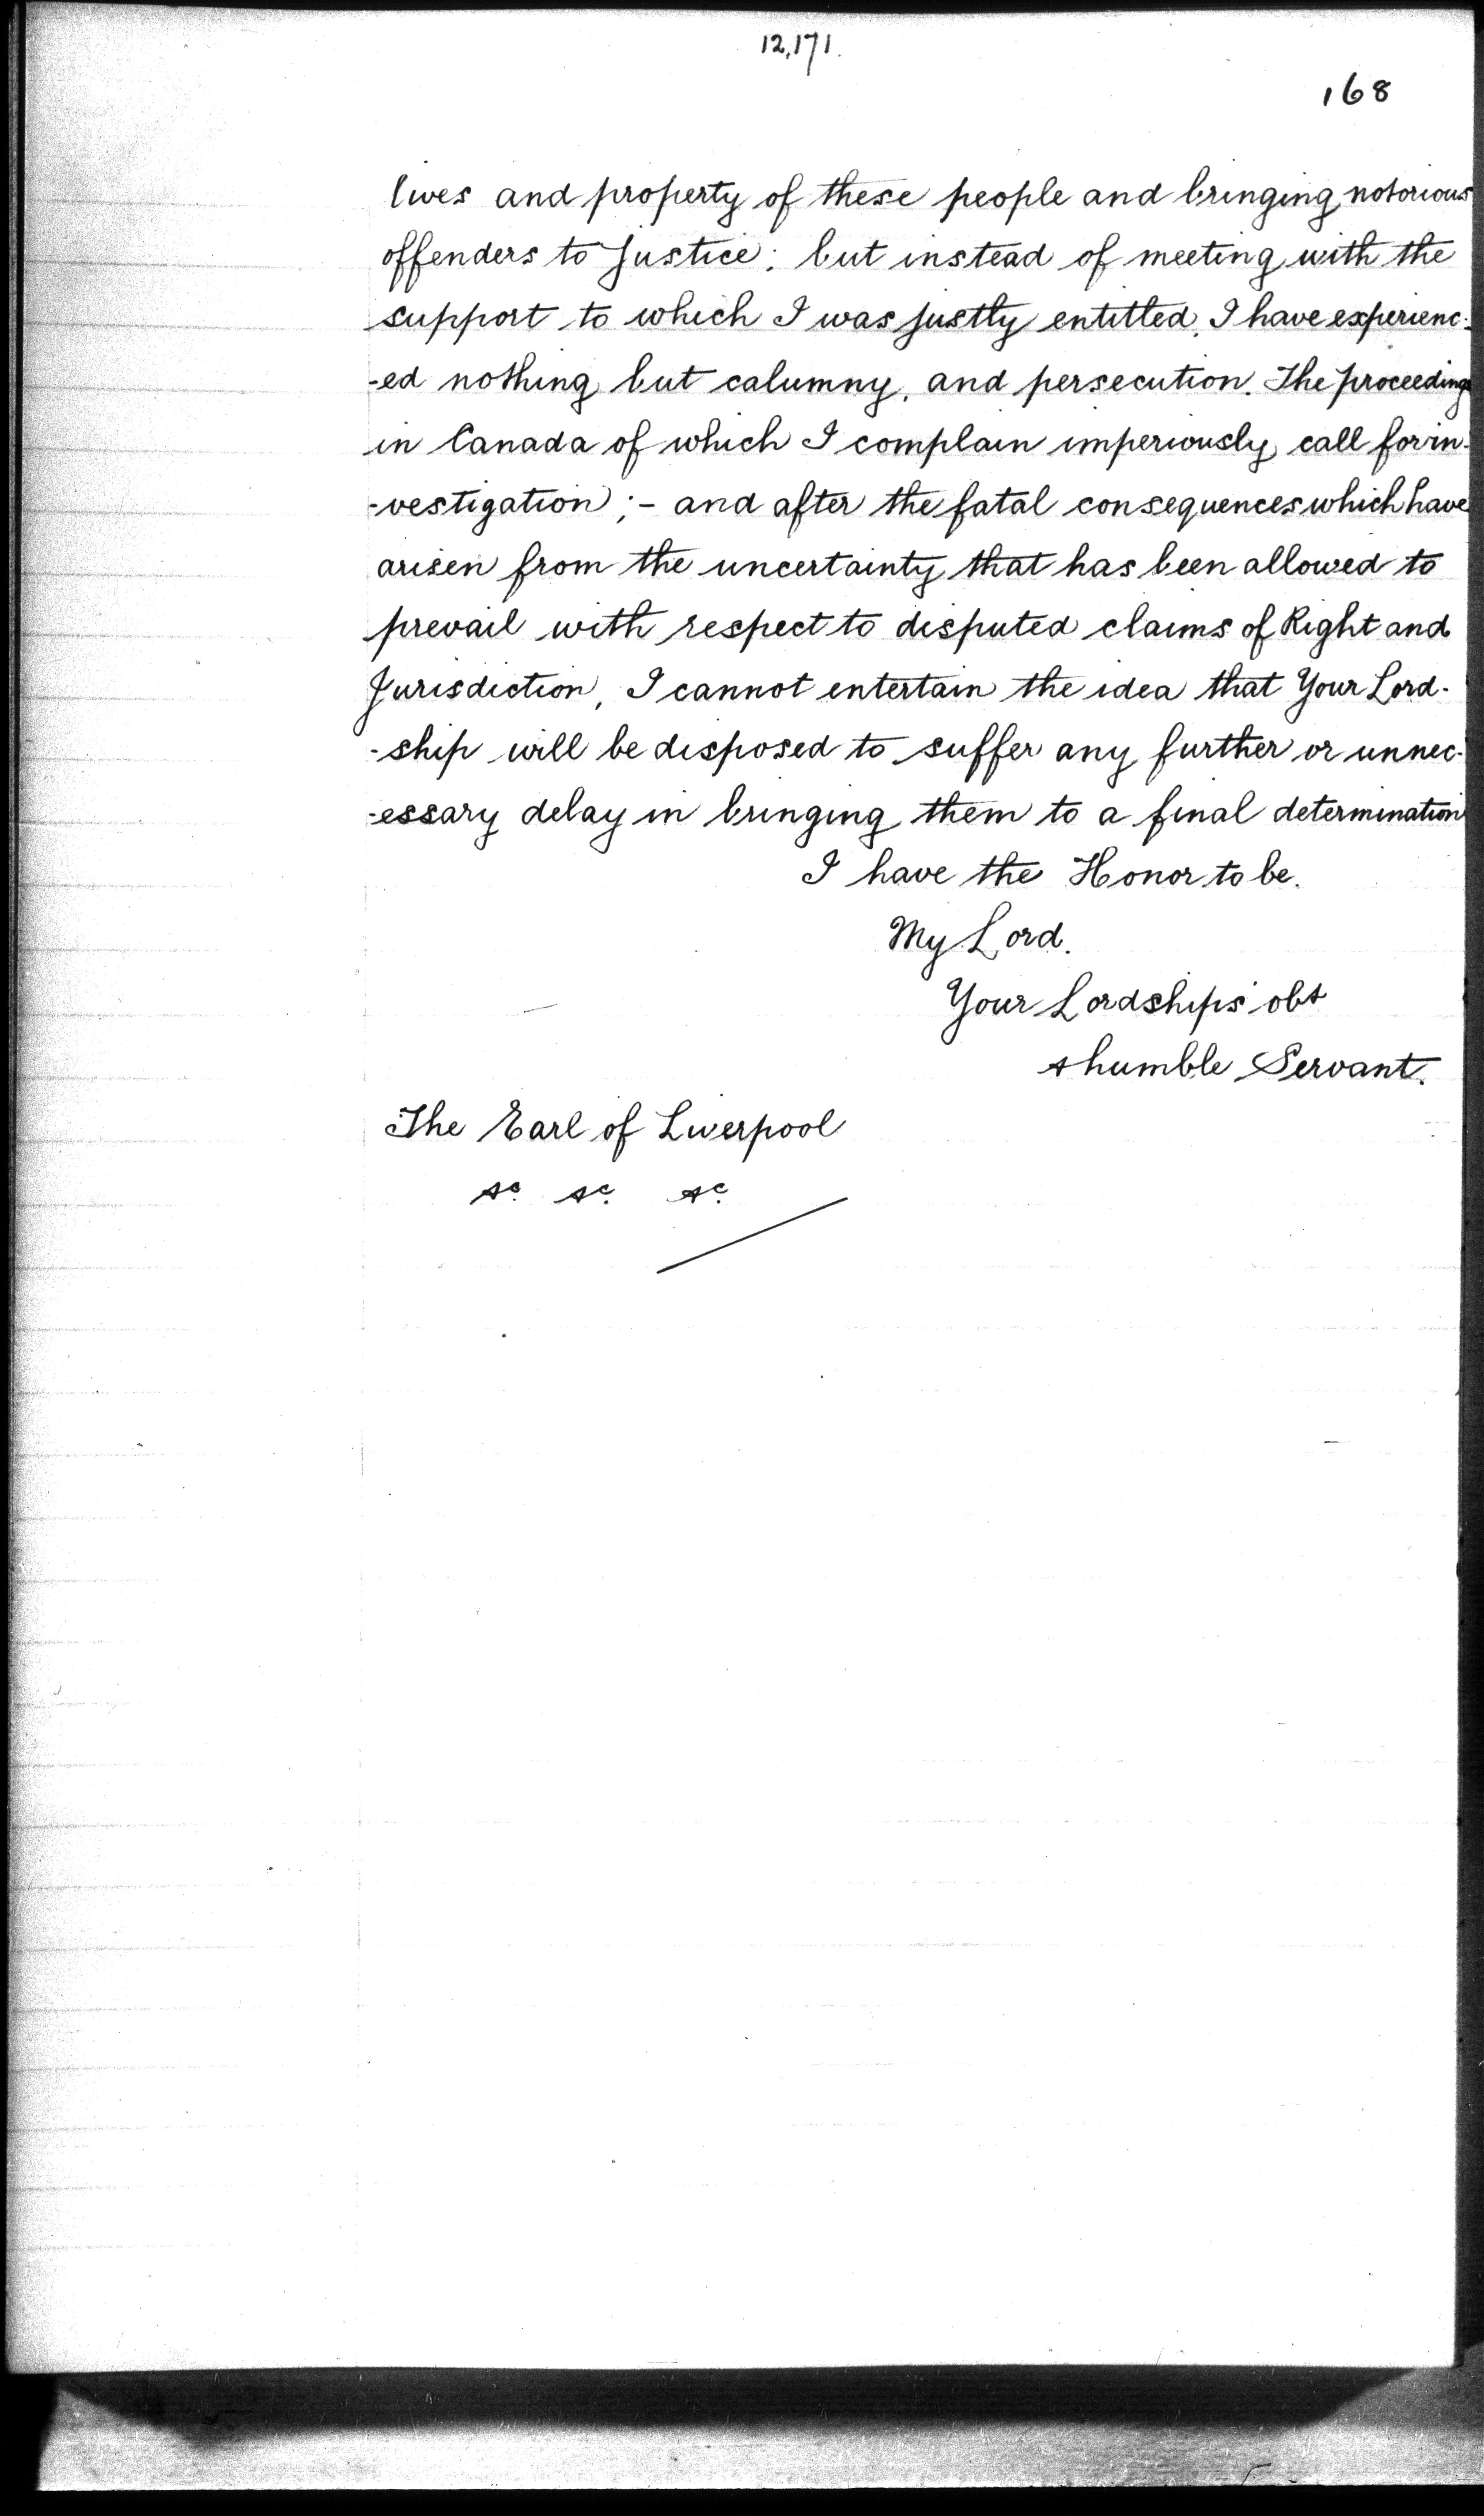 12,171.
168
lives and property of these people and bringing notorious
offenders to Justice; but instead of meeting with the
support to which I was justly entitled, I have experienc-
-ed nothing but calumny, and persecution. The proceedings
in Canada of which I complain imperiously call for in-
-vestigation;- and after the fatal consequences which have
arisen from the uncertainty that has been allowed to
prevail with respect to disputed claims of Right and
Jurisdiction, I cannot entertain the idea that Your Lord-
-ship will be disposed to suffer any further or unnec-
-essary delay in bringing them to a final determination
I have the Honor to be.
My Lord.
Your Lordships' obt
& humble Servant.
The Earl of Liverpool
&c. &c. &c.